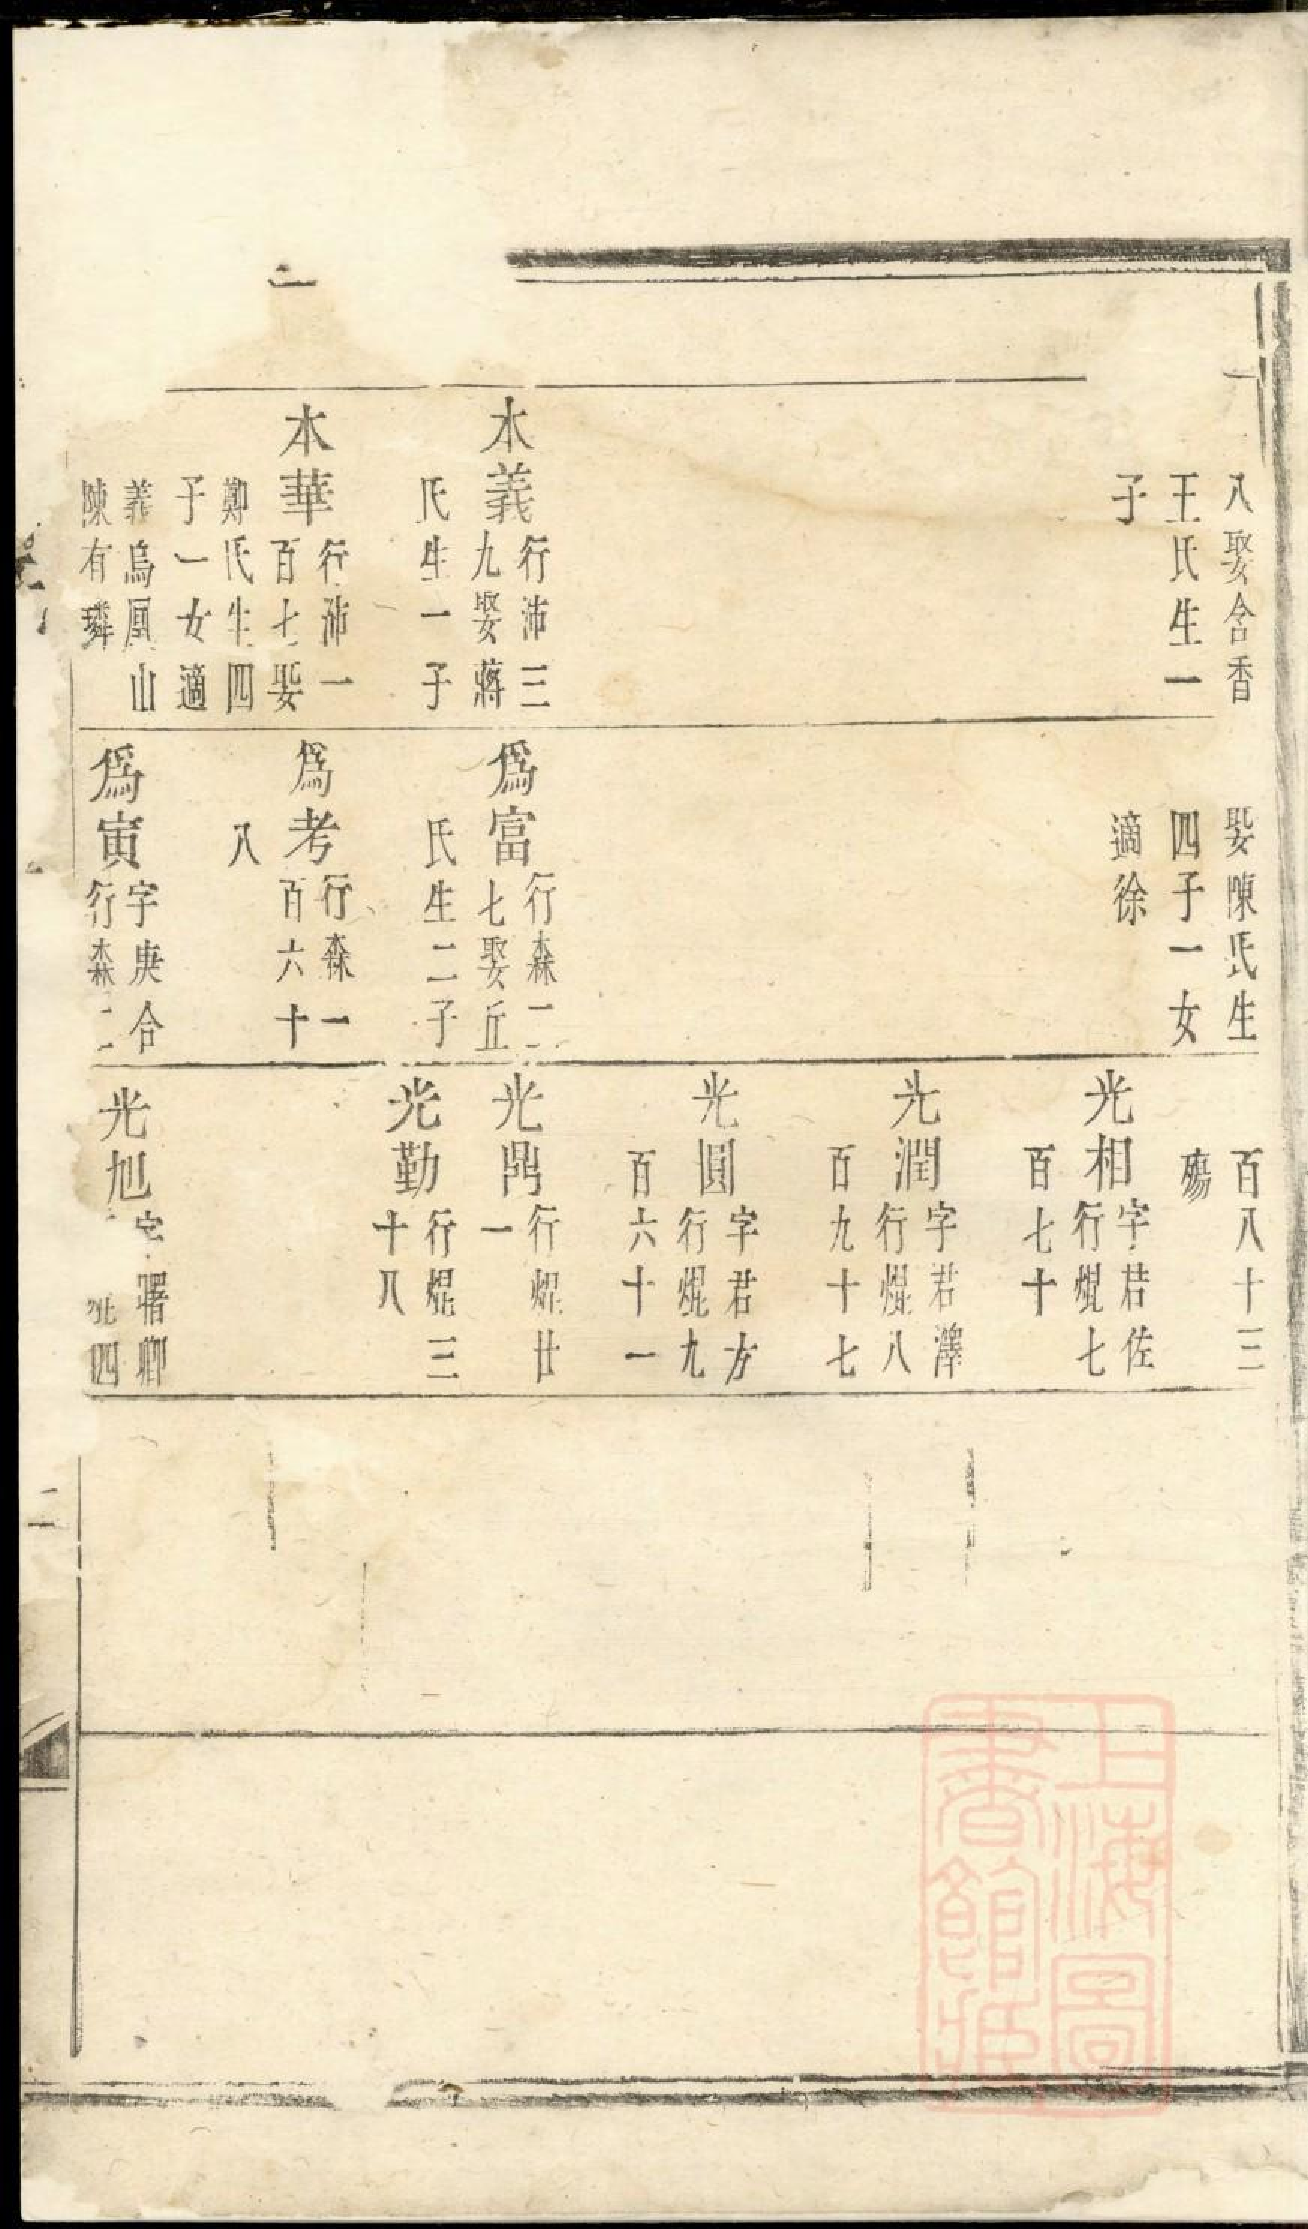 八娶含香
王氏生一
子
本義
行沛三
九娶蔣
氏生一子
本華
行沛一
百七娶
鄭氏生四
子一女適
義烏鳳山
陳有璘
娶陳氏生
四子一女
適徐
為富
行森二
七娶丘
氏生二子
為考
行森一
百六十
八
為寅
字庚合
行森二
百八十三
殤
光相
字君佐
行焜七
百七十
光潤
字君澤
行焜八
百九十七
光圓
字君方
行焜九
百六十一
光鼎
行焜廿
一
光勤
行焜三
十八
光旭
字曙卿
四
二
上海圖
書館藏